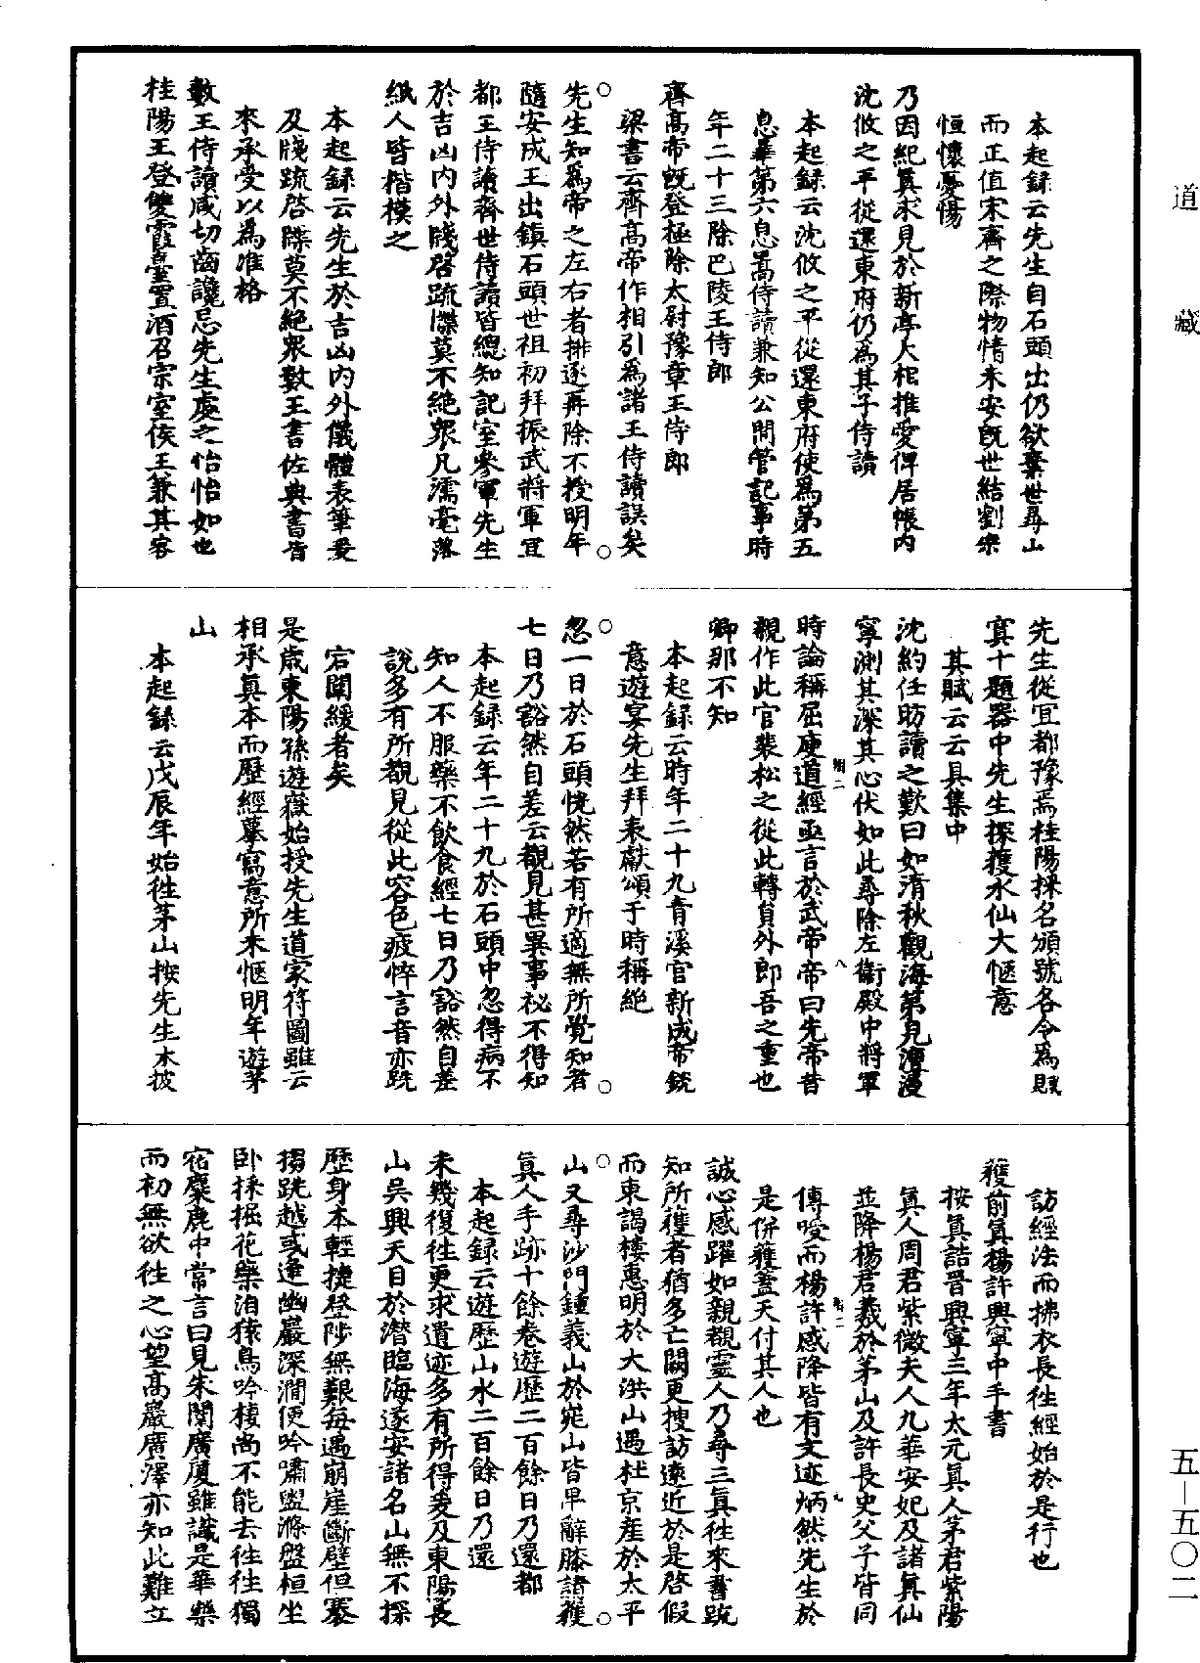 道藏
本起録云先生自石頭出仍欲棄世尋山
而正值宋齊之際物情未安旣世結劉宗
恒懷憂惕
乃因紀真求見於新亭大相推愛俾居帳内
沈攸之平從還東府仍爲其子侍讀
本起録云沈攸之平從還東府使爲第五
息曅第六息暠侍讀兼知公間管記事時
年二十三除巴陵王侍郎
齊高帝旣登極除太尉豫章王侍郎
梁書云齊高帝作相引爲諸王侍讀誤矣
先生知爲帝之左右者排逐再除不授明年
隨安成王出鎮石頭世祖初拜振武將軍宜
都王侍讀齊世侍讀皆總知記室參軍先生
於吉凶内外牋啓疏牒莫不絶衆凡濡毫落
紙人皆楷模之
本起録云先生於吉凶内外儀體表箋爰
及牋疏啓牒莫不絶衆數王書佐典書皆
來承受以為准格
數王侍讀咸切齒讒忌先生處之怡怡如也
桂陽王登雙霞臺置酒召宗室侯王兼其客
先生從宜都豫焉桂陽採名頒號各令爲賦
寘十題器中先生探獲水仙大愜意
其賦云云具集中
沈約任昉讀之歎曰如清秋觀海第見澶漫
寧測其深其心伏如此尋除左衛殿中將軍
時論稱屈庾道經亟言於武帝帝曰先帝昔
親作此官裴松之從此轉員外郎吾之重也
卿那不知
本起録云時年二十九青溪官新成帝鋭
意遊宴先生拜表獻頌于時稱絶
忽一日於石頭恍然若有所適無所覺知者
七日乃豁然自差云覩見甚異事祕不得知
本起録云年二十九於石頭中忽得病不
知人不服藥不飲食經七日乃豁然自差
說多有所覩見從此容色疲悴言音亦跌
宕闡緩者矣
是歲東陽孫遊嶽始授先生道家符圖雖云
相承真本而歷經摹寫意所未愜明年遊茅
山
本起録云戊辰年始往茅山按先生本披
訪經法而拂衣長往經始於是行也
獲前真楊許興寧中手書
按真誥晉興寧三年太元真人茅君紫陽
真人周君紫微夫人九華安妃及諸真仙
並降楊君羲於茅山及許長史父子皆同
傳噯而楊許感降皆有文迹炳然先生於
是併獲蓋天付其人也
誠心感躍如親覩靈人乃尋三真往來書疏
知所獲者猶多亡闕更搜訪遠近於是啓假
而東謁樓惠明於大洪山遇杜京産於太平
山又尋沙門鍾義山於宛山皆早辭滕諸獲
真人手跡十餘卷遊歷二百餘日乃還都
本起録云遊歷山水二百餘日乃還
未幾復往更求遺迹多有所得爰及東陽長
山吳興天目於潛臨海遂安諸名山無不探
歷身本輕捷登陟無艱每遇崩崖斷壁但褰
獨跣越或逢幽巖深澗便吟嘯盥滌盤桓坐
卧採掘花藥泊猿鳥吟棲尚不能去往往獨
宿麋鹿中常言曰見朱闕廣厦雖識是華樂
而初無欲往之心望高巖廣澤亦知此難立
五—五〇二